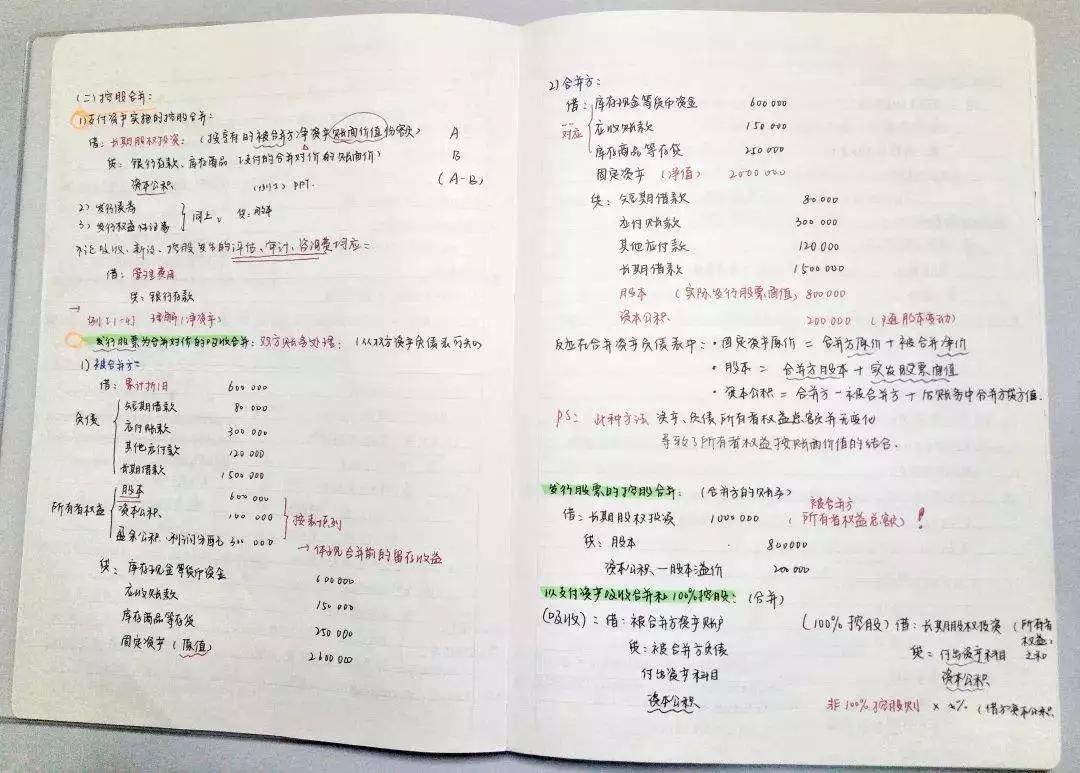 (二)控股合并:
1)支付资产实施的控股合并:
借:长期股权投资:(按享有的被合并方净资产账面价值份额) A
贷:银行存款、库存商品(支付的合并对价的账面价) B
资本公积 PPT. (A-B)
2)发行债券
3)发行权益性证券 } 同上、贷:股本
不论吸收、新设、控股发生的评估、审计、咨询费均应:
借:管理费用
贷:银行存款
→ 例[1-4] 理解(净资产)
发行股票为合并对价的吸收合并:双方账务处理:(从双方资产负债表可知)
1)被合并方:
借:累计折旧 600 000
负债 短期借款 80 000
应付账款 300 000
其他应付款 120 000
长期借款 1500 000
所有者权益 股本 600 000
资本公积 100 000
盈余公积、利润分配 300 000
按表顺列
→体现合并前的留存收益
贷:库存现金等货币资金 600 000
应收账款 150 000
库存商品等存货 250 000
固定资产(原值) 2600 000
2)合并方:
借:库存现金等货币资金 600 000
对应 应收账款 150 000
库存商品等存货 250 000
固定资产(净值) 2000 000
贷:短期借款 80 000
应付账款 300 000
其他应付款 120 000
长期借款 1500 000
股本 (实际发行股票面值) 800 000
资本公积 200 000 (随股本变动)
反应在合并资产负债表中:·固定资产原价=合并方原价+被合并净价
·股本=合并方股本+实发股票面值
·资本公积=合并方-被合并方+ 账务中合并方贷方值.
PS:此种方法 资产、负债 所有者权益总额并无变化
导致了所有者权益按账面价值的结合.
发行股票的控股合并:(合并方的账务)
借:长期股权投资 1000 000 (被合并方所有者权益总额)!
贷:股本 800000
资本公积—股本溢价 200 000
以支付资产吸收合并和100%控股:(合并)
(吸收):借:被合并方资产账户
贷:被合并方负债
付出资产科目
资本公积
(100%控股)借:长期股权投资(所有者权益之和)
贷:付出资产科目
资本公积
非100%控股则 × x% (借方资本公积